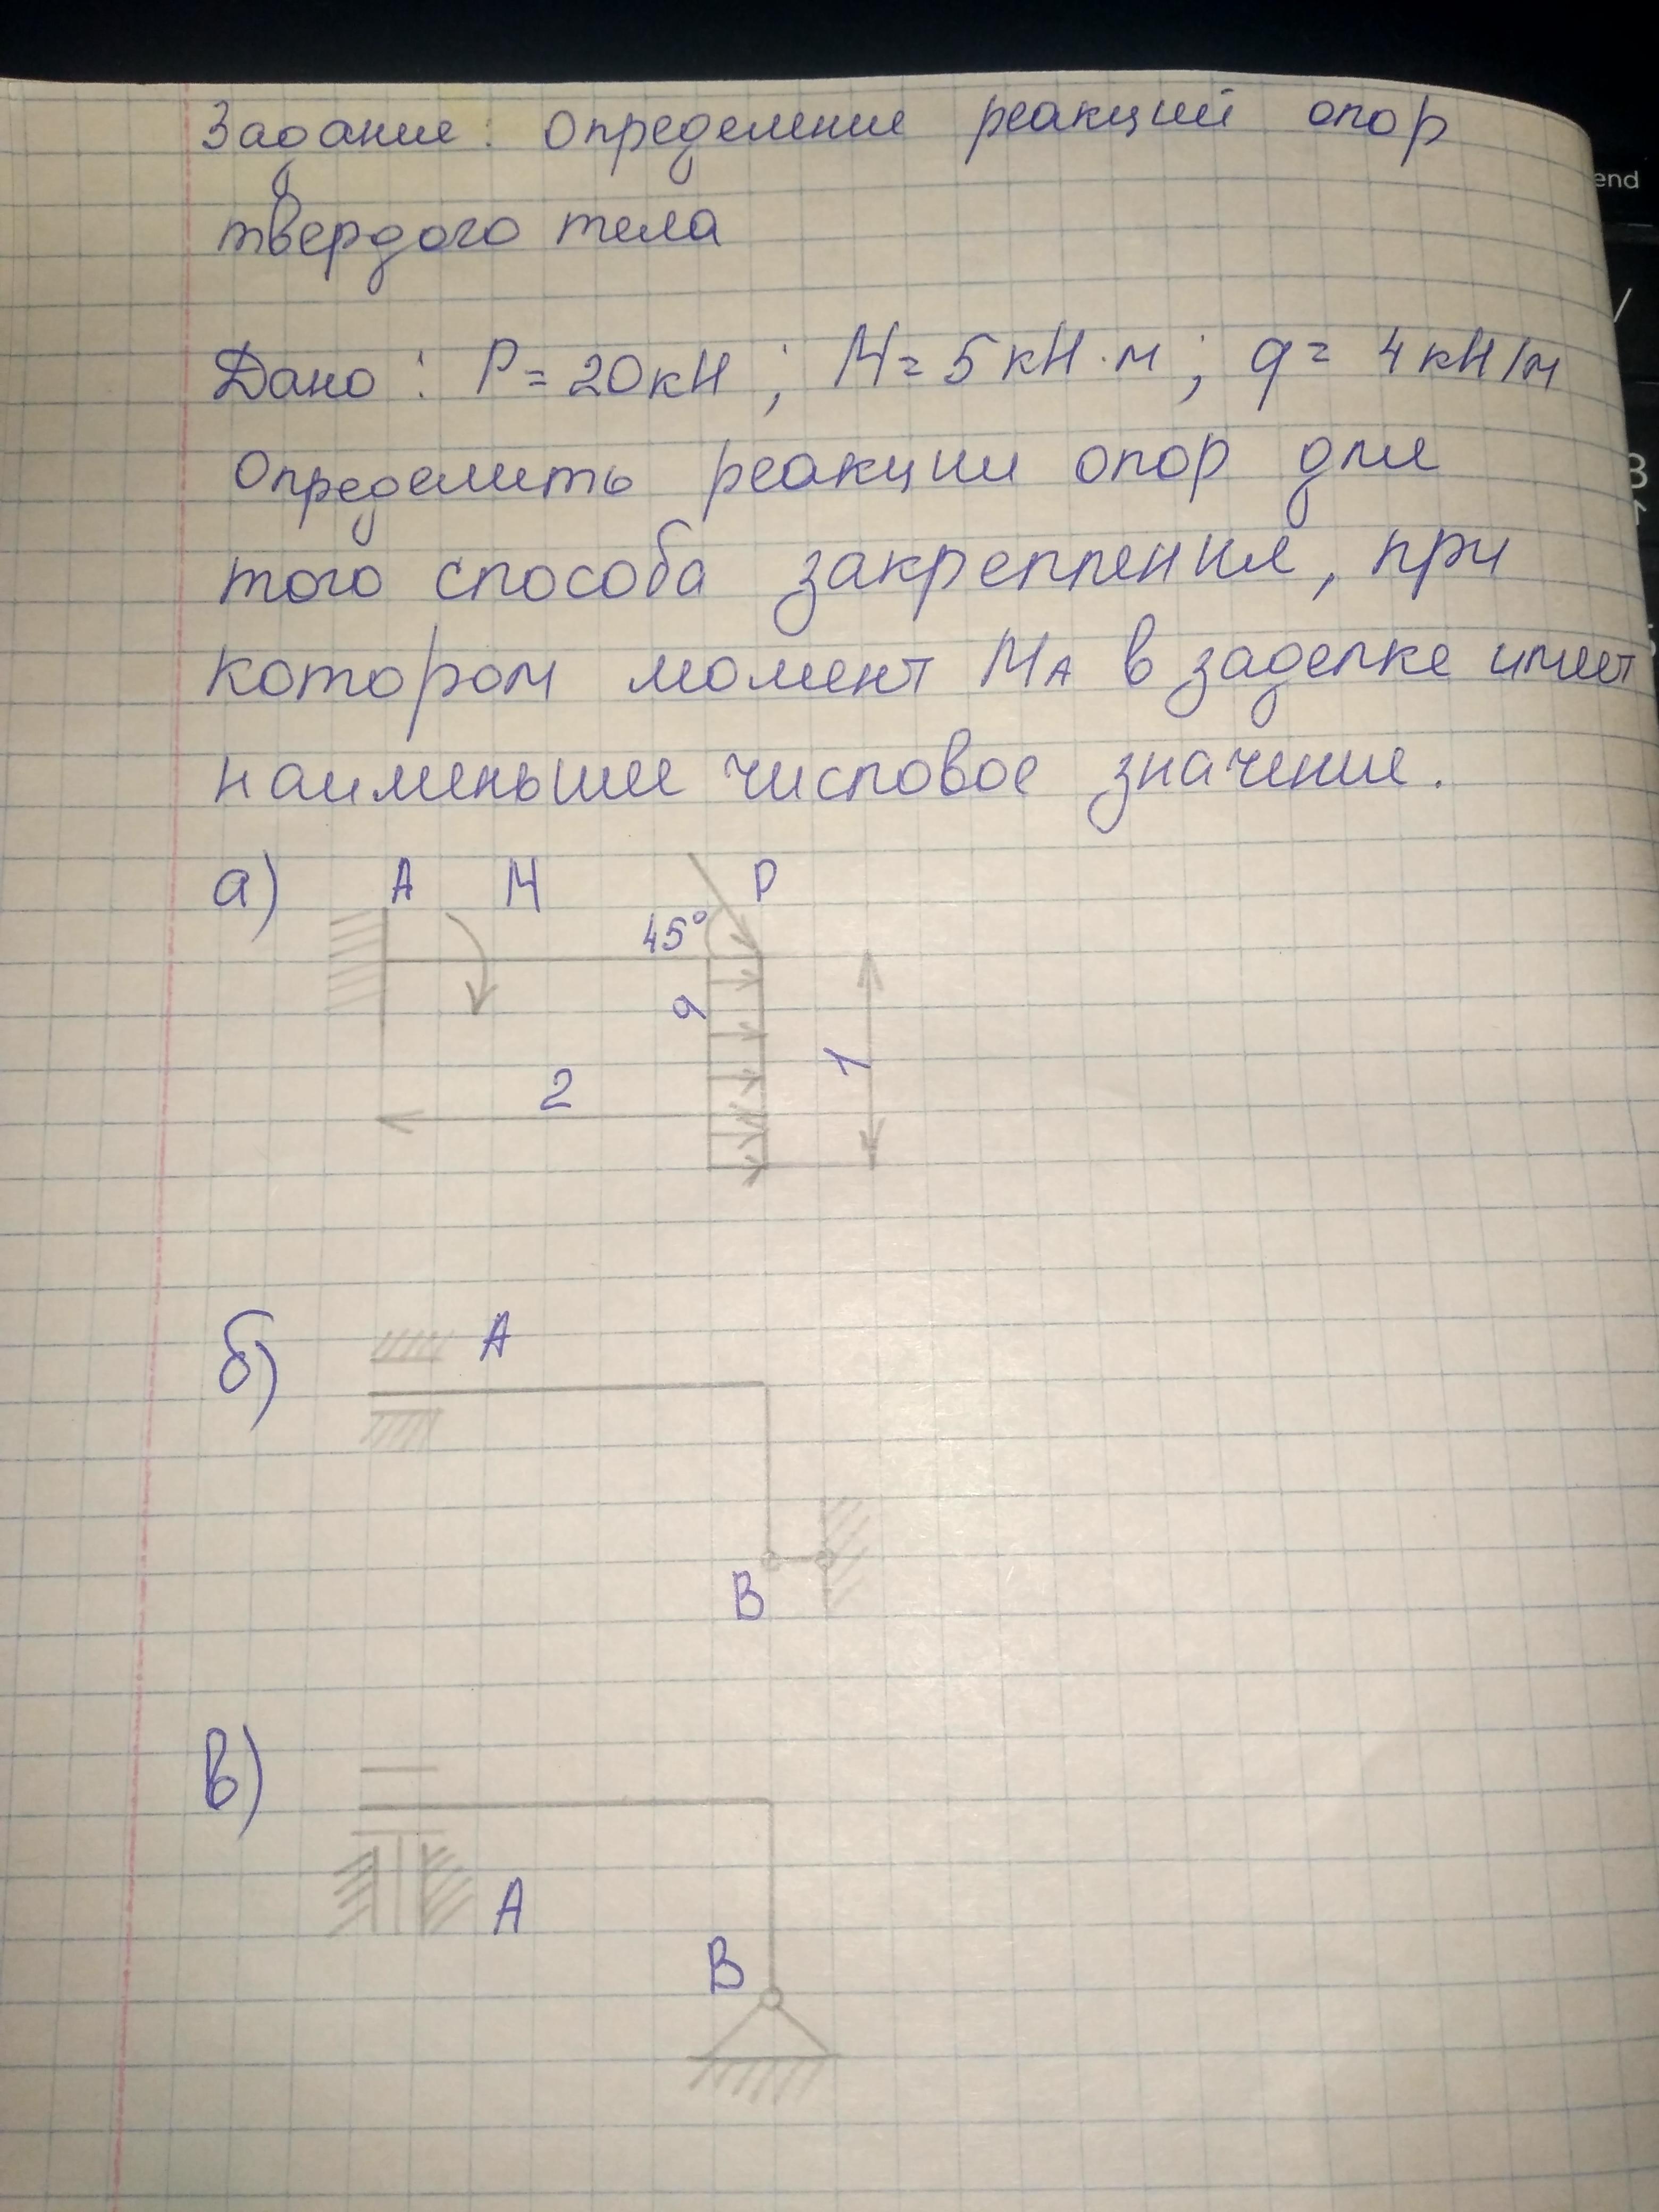 Задание: Определение реакций опор
твердого тела
Дано: P = 20 кН; М = 5 кН·м; q = 4 кН/м
Определить реакции опор для
того способа закрепления, при
котором момент МА в заделке имеет
наименьшее числовое значение.
а) А М P
45°
q
2
1
б) А
В
в)
А
В
end
/
3